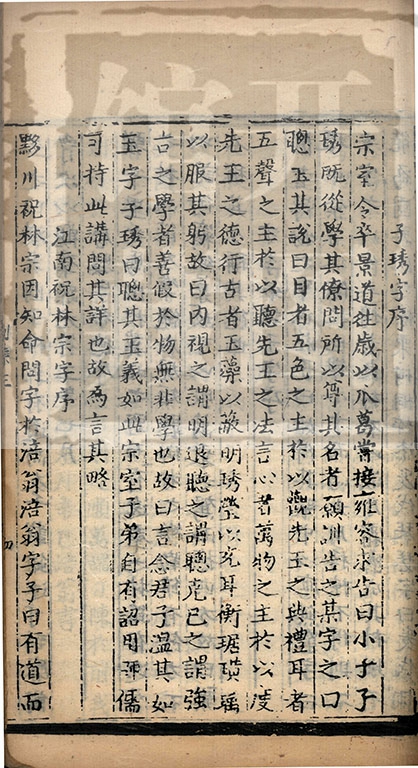 子琇字序
宗室令卒景道往歳以瓜葛嘗接雍容求告曰小子子
琇既從學其僚問所以㝵其名者願訓告之某字之曰
聰玉其說曰目者五色之主於以觀先王之典禮耳者
五聲之主於以聽先王之法言心者萬物之主於以度
先王之德行古者玉藻以蔽明琇瑩以充耳衡琚璜瑀
以服其躬故曰内視之謂明退聽之謂聰克己之謂強
言之學者善假於物無非學也故曰言念君子溫其如
玉字子琇曰聰其玉義如此宗室子弟自有詔用師儒
可持此講問其詳也故為言其略
江南祝林宗字序
黟川祝林宗因知命問字於涪翁涪翁字子曰有道而